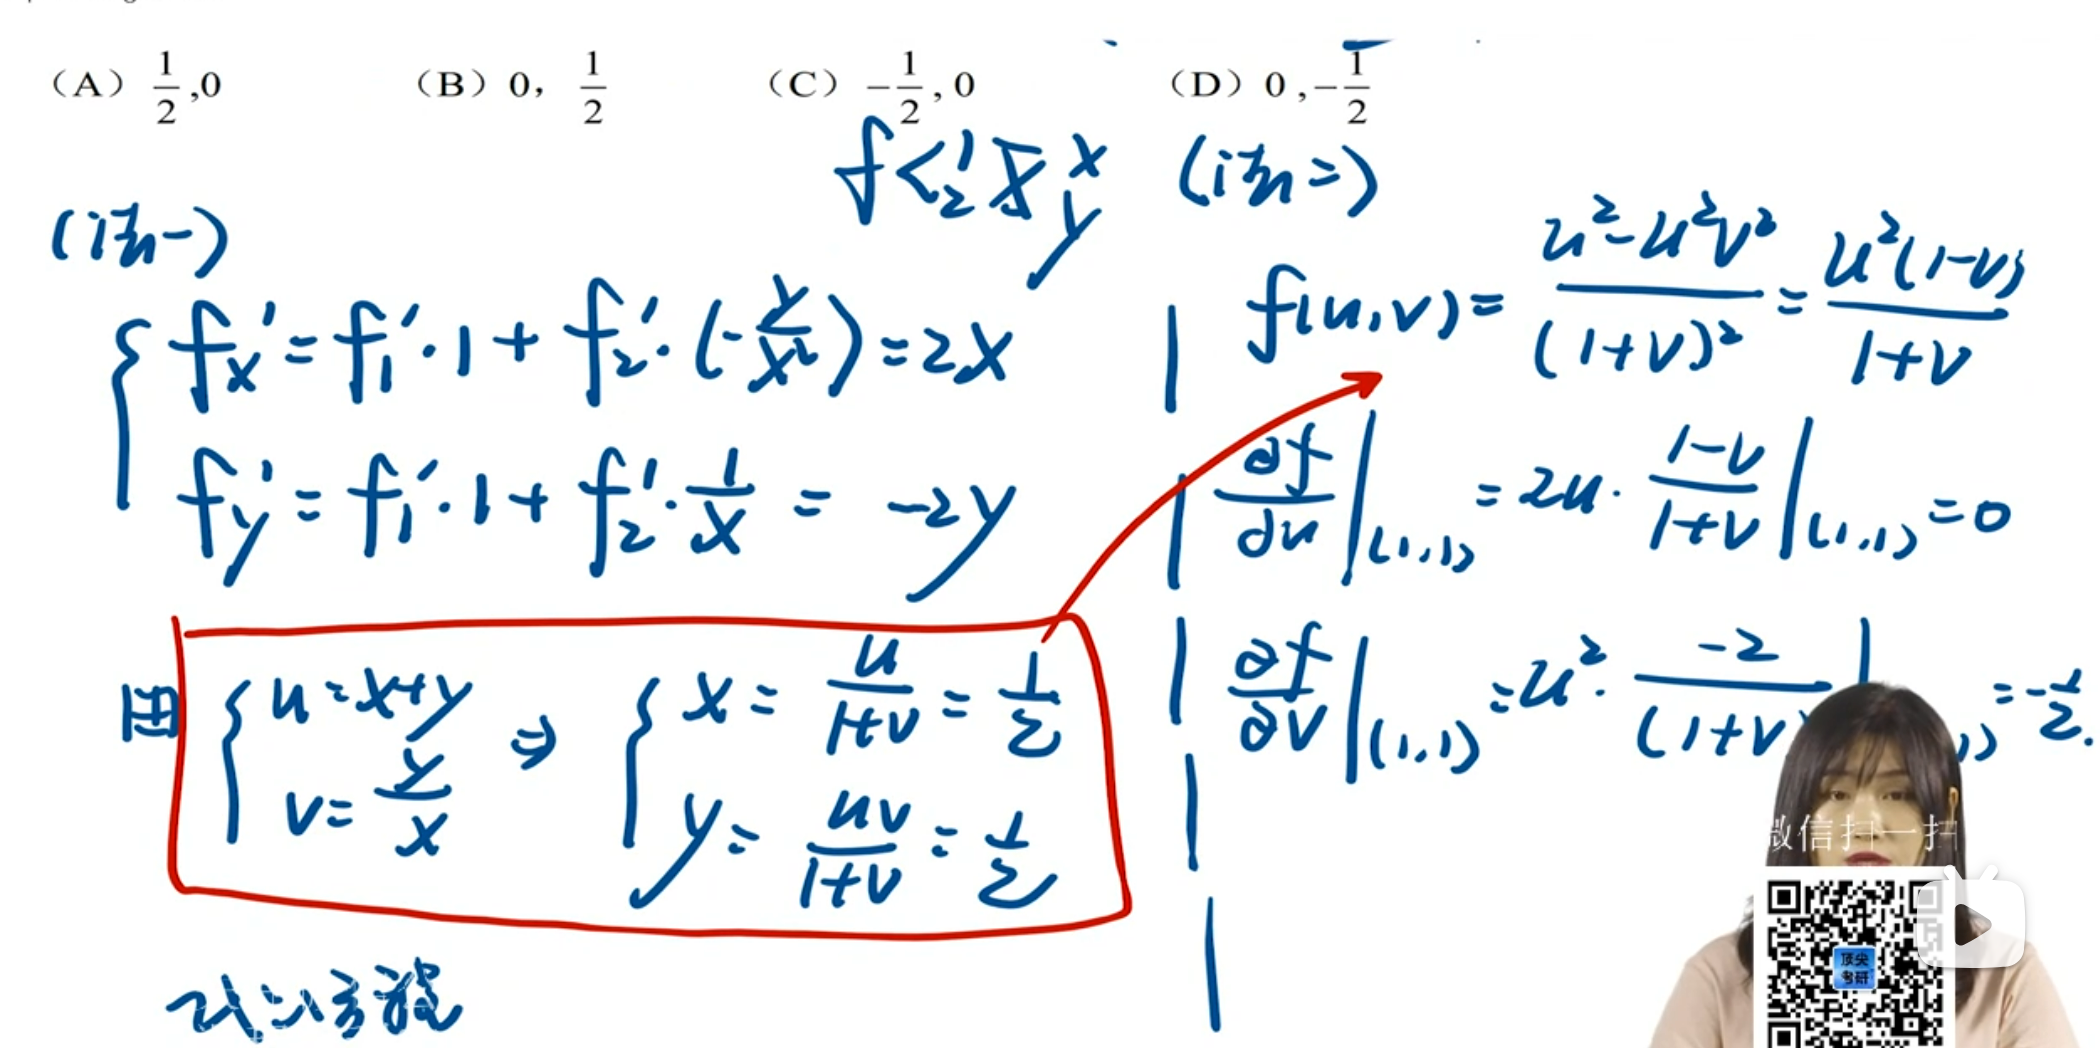 (A) 1/2 ,0 (B) 0, 1/2 (C) -1/2 , 0 (D) 0 ,-1/2
f < 1 2 x y
(法一)
fx' = f1'·1 + f2'·(-y/x²) = 2x
fy' = f1'·1 + f2'·1/x = -2y
由 { u = x+y v = y/x ⇒ { x = u/(1+v) = 1/2 y = uv/(1+v) = 1/2
代入方程
(法二)
f(u,v) = (u²-u²v²)/(1+v)² = u²(1-v)/(1+v)
∂f/∂u |(1,1) = 2u·(1-v)/(1+v) |(1,1) = 0
∂f/∂v |(1,1) = u²·-2/(1+v) = -1/2.
微信扫一扫
顶尖
考研